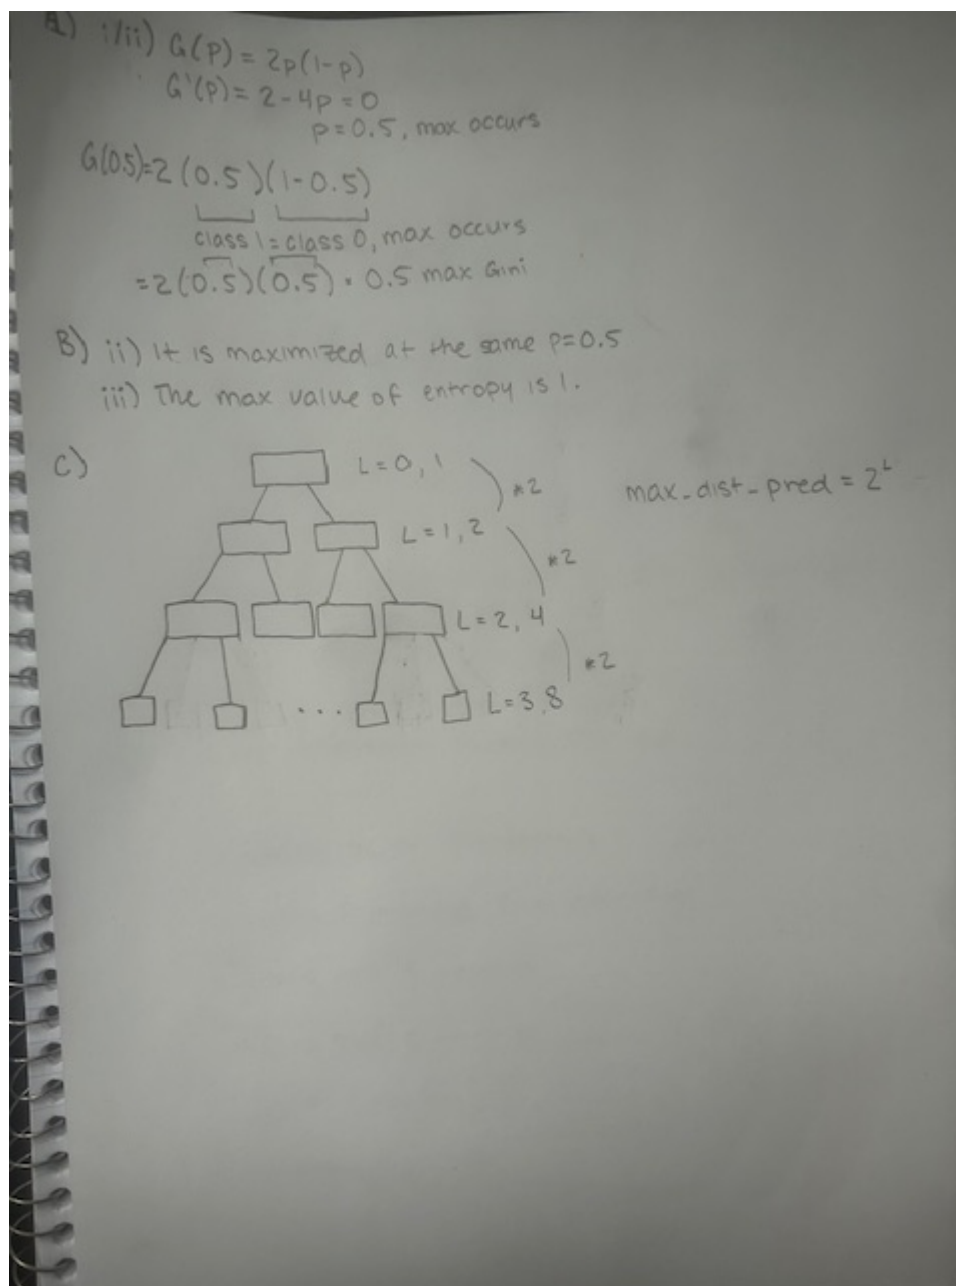 A) i/ii) G(p) = 2p(1-p)
G'(p) = 2-4p = 0
p = 0.5, max occurs
G(0.5)=2(0.5)(1-0.5)
class 1 = class 0, max occurs
=2(0.5)(0.5) = 0.5 max Gini
B) ii) It is maximized at the same p=0.5
iii) The max value of entropy is 1.
C) L = 0, 1
*2
max_dist_pred = 2^L
L = 1, 2
*2
L = 2, 4
*2
...
L = 3, 8